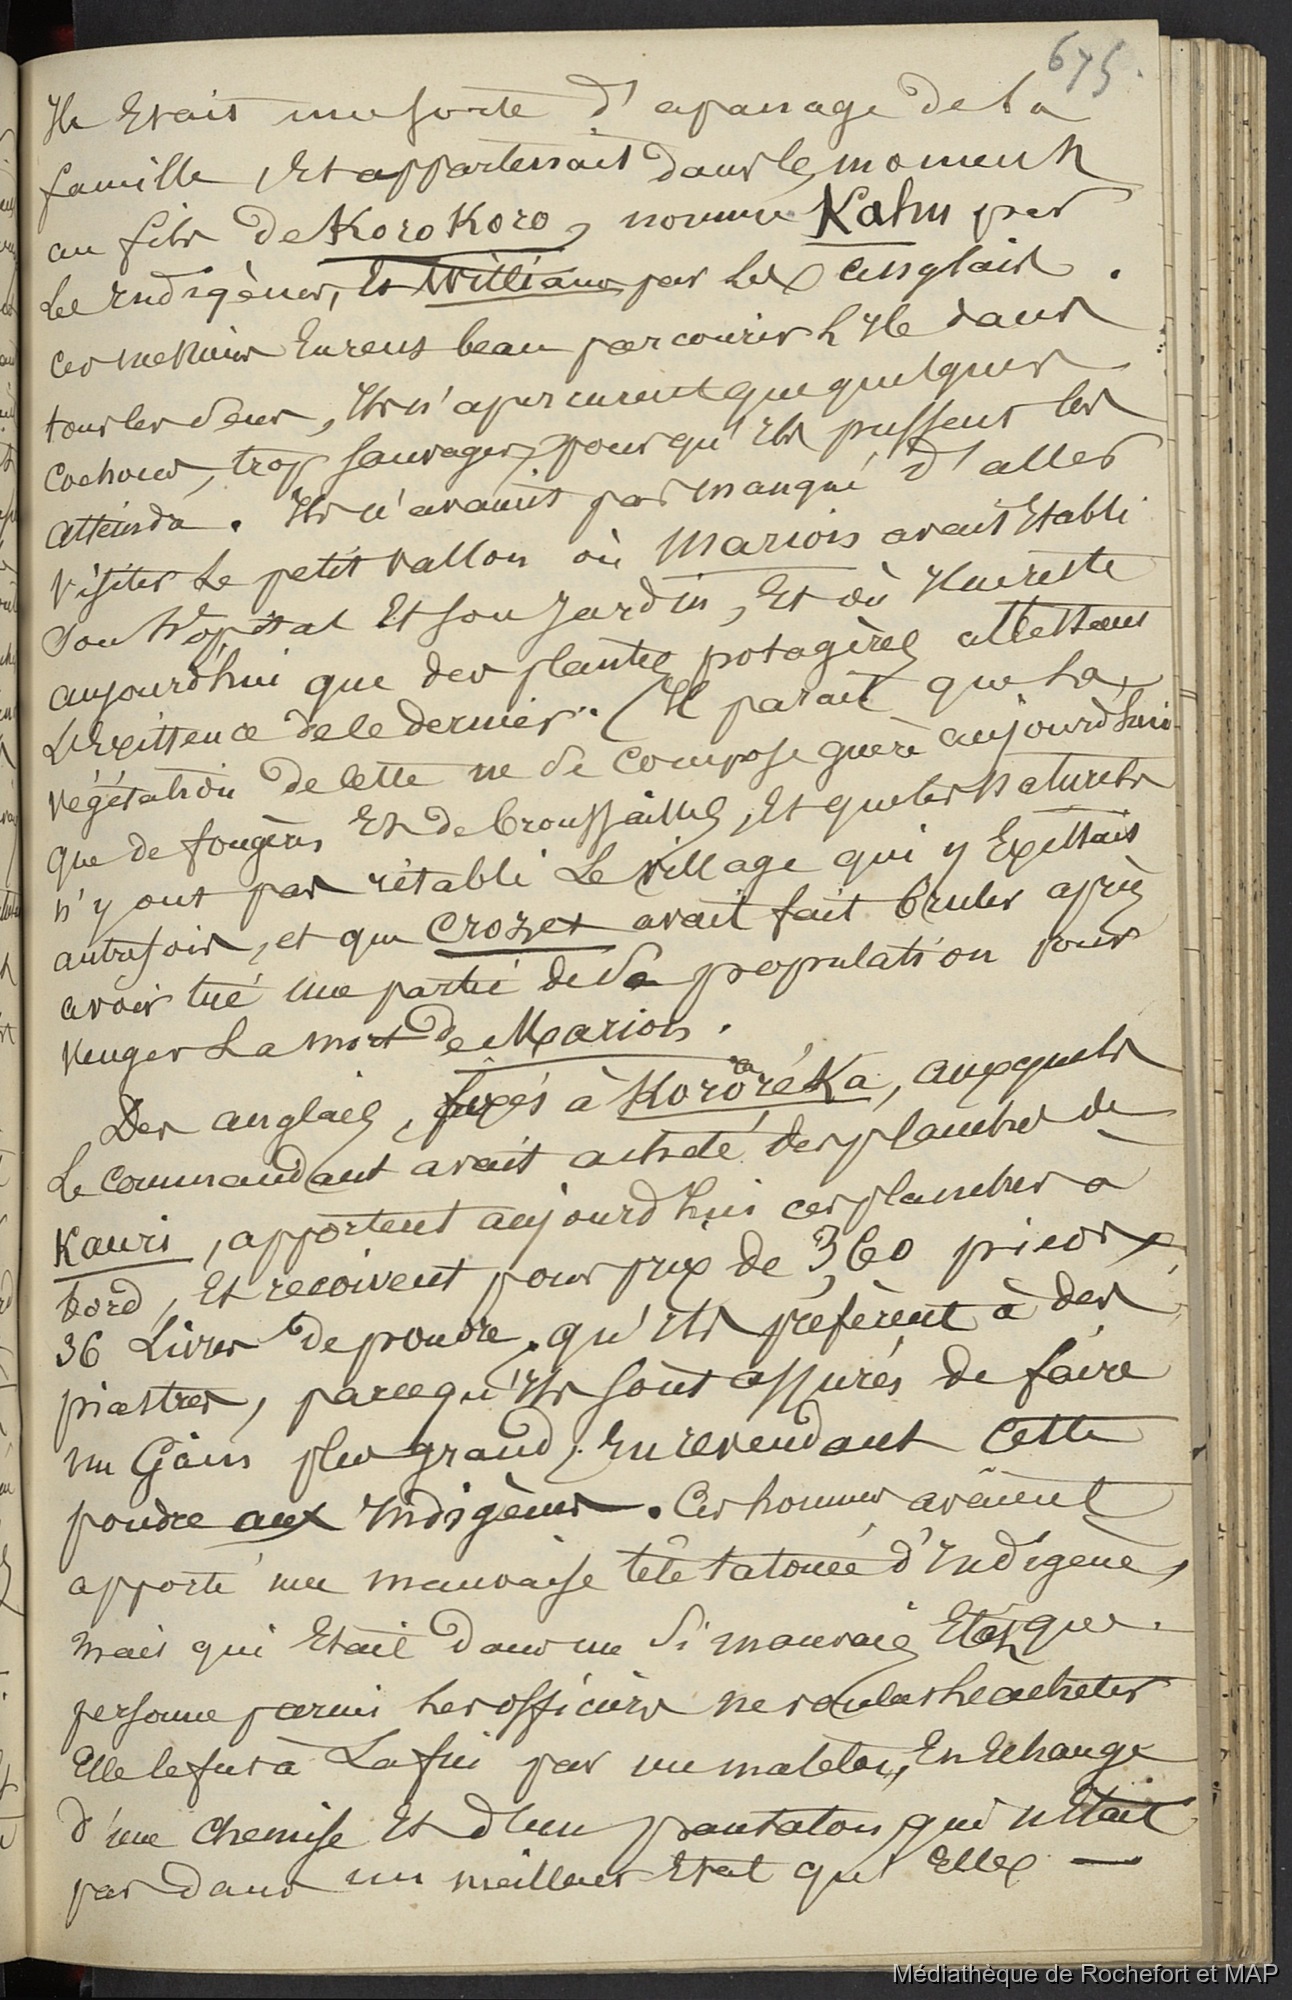 675.
Ile Etait une sorte d'apanage de la
famille, Et appartenait dans le moment
au fils de KoroKoro, nommé Kahu par
Les Indigènes, Et William par Les anglais.
ces messieurs Eurent beau parcourir L'Ile dans
tous les sens, Ils n'apercurent que quelques
cochons, trop sauvages pour qu'Ils pussent les
atteindre. Ils n'avaient pas manqué d'aller
visiter Le petit vallon où Marion avait Etabli
Son hopital Et son Jardin, Et où Il ne reste
aujourd'hui que des plantes potagères attestant
L'Existence de ce dernier. Il parait que La
végétation de cette ne se compose guère aujourd'hui
que de fougères Et de broussailles, Et que les naturels
n'y ont pas rétabli Le village qui y Existait
autrefois, et que Crozet avait fait bruler après
avoir tué une partie de Sa population pour
venger La mort de Marion.
Des anglais, fixés à Kororéka, auxquels
Le commandant avait acheté des planches de
Kauri, apportent aujourd'hui ces planches à
bord, Et recoivent pour prix de 360 pieds
36 Livres de poudre, qu'Ils préfèrent à des
piastres, parcequ'Ils sont assurés de faire
un Gain plus grand, En revendant cette
poudre aux Indigènes. Ces hommes avaient
apporté une mauvaise tête tatouée d'Indigène,
mais qui Etait dans un Si mauvais Etat que
personne parmi Les officiers ne voulut L'acheter
Elle le fut à La fin par un matelot, En Echange
d'une chemise Et d'un pantalon qui n'Etait
pas dans un meilleur Etat qu'Elle
Médiathèque de Rochefort et MAP